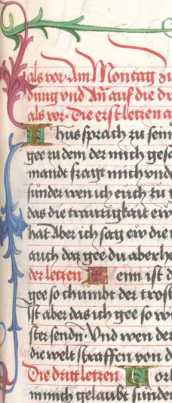 als vor. Am Montag zu
nung vnd Añ auf die dr
als vor. Die erst letzen a
hus sprach zu sein
gee zu dem der mich gesa
mandt fragt mich vnd
sunder wen ich euch zu
das die traurigkait ew
hat Aber ich sag ew die
auch das gee du aberhe
der letzen enn ist d
gee so chumbt der trost
ist aber das ich gee so wi
ster senden. Vnd wen der
die welt straffen von d
Die dritt letzen orb
in mich gelaubt sunder